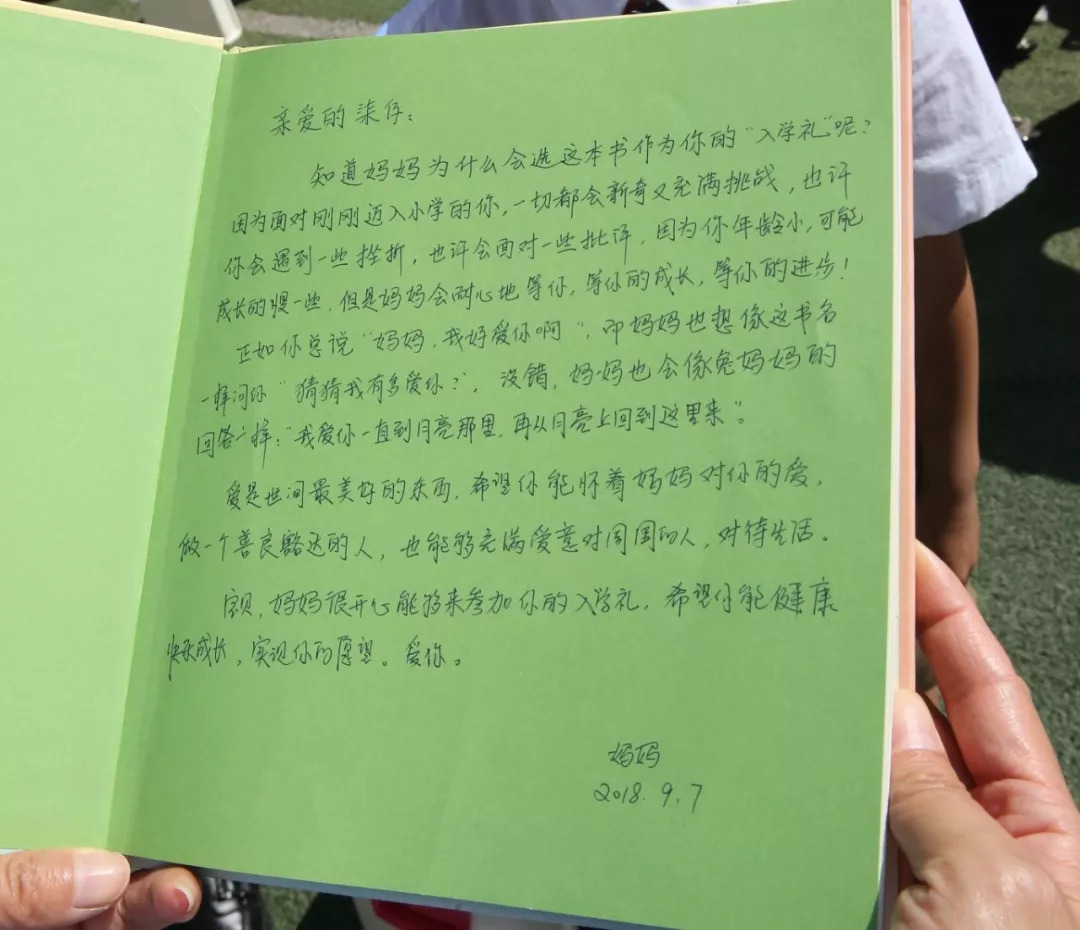 亲爱的柒仔：
知道妈妈为什么会选这本书作为你的"入学礼"呢？
因为面对刚刚迈入小学的你，一切都会新奇又充满挑战，也许
你会遇到一些挫折，也许会面对一些批评，因为你年龄小，可能
成长的慢一些，但是妈妈会耐心地等你，等你的成长，等你的进步！
正如你总说"妈妈，我好爱你啊"，那妈妈也想像这书名
一样问你"猜猜我有多爱你？"，没错，妈妈也会像兔妈妈的
回答一样："我爱你一直到月亮那里，再从月亮上回到这里来"。
爱是世间最美好的东西，希望你能怀着妈妈对你的爱，
做一个善良豁达的人，也能够充满爱意对周围的人，对待生活。
宝贝，妈妈很开心能够来参加你的入学礼，希望你能健康
快乐成长，实现你的愿望。爱你。
妈妈
2018.9.7